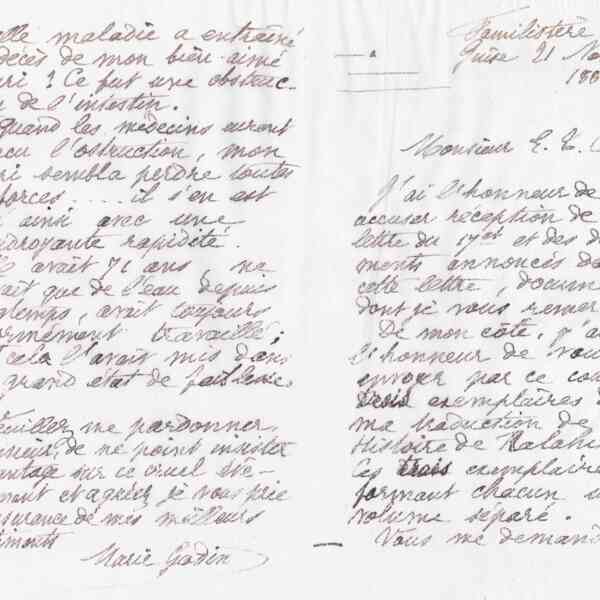 elle maladie a entraîné
décès de mon bien-aimé
ri ? Ce fut une obstruc-
de l'intestin.
quand les médecins eurent
cu l'ostruction, mon
ri sembla perdre toutes
forces .... il s'en est
ainsi avec une
croyante rapidité.
avait 71 ans, ne
ait que de l'eau depuis
temps, avait toujours
ormément travaillé ;
cela l'avait mis dans
grand état de faiblesse.
Veuillez me pardonner,
nsieur, de ne point insister
antage sur ce cruel évé-
ment et agréez je vous prie
ssurance de mes meilleurs
timents
Marie Godin
Familistère
Guise 21 No
188
Monsieur E. T. C
J'ai l'honneur de
accuser réception de
lettre du 17 et des d
ments annoncés da
cette lettre, docum
dont je vous remer
De mon côté, j'a
l'honneur de vou
envoyer par ce cou
trois exemplaires d
ma traduction de
Histoire de Kalahu
ces trois exemplaire
formant chacun u
volume séparé.
Vous me demand